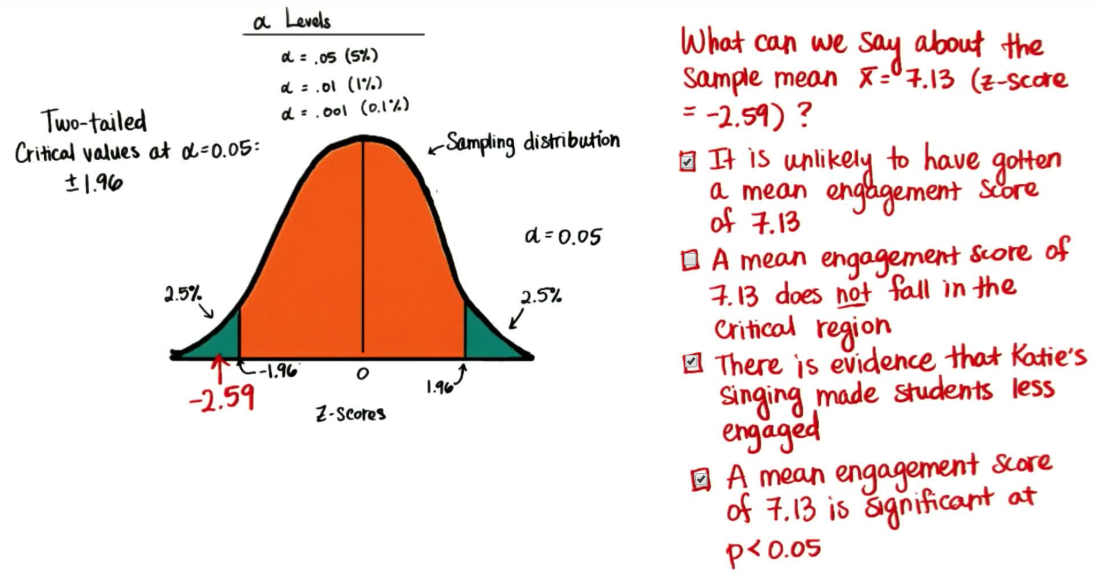 α Levels
α = .05 (5%)
α = .01 (1%)
α = .001 (0.1%)
Two-tailed
Critical values at α=0.05:
±1.96
Sampling distribution
α=0.05
2.5%
2.5%
-1.96
0
1.96
-2.59
Z-scores
What can we say about the
Sample mean x̄=7.13 (z-score
= -2.59) ?
It is unlikely to have gotten
a mean engagement score
of 7.13
A mean engagement score of
7.13 does not fall in the
Critical region
There is evidence that Katie's
singing made students less
engaged
A mean engagement score
of 7.13 is significant at
p<0.05